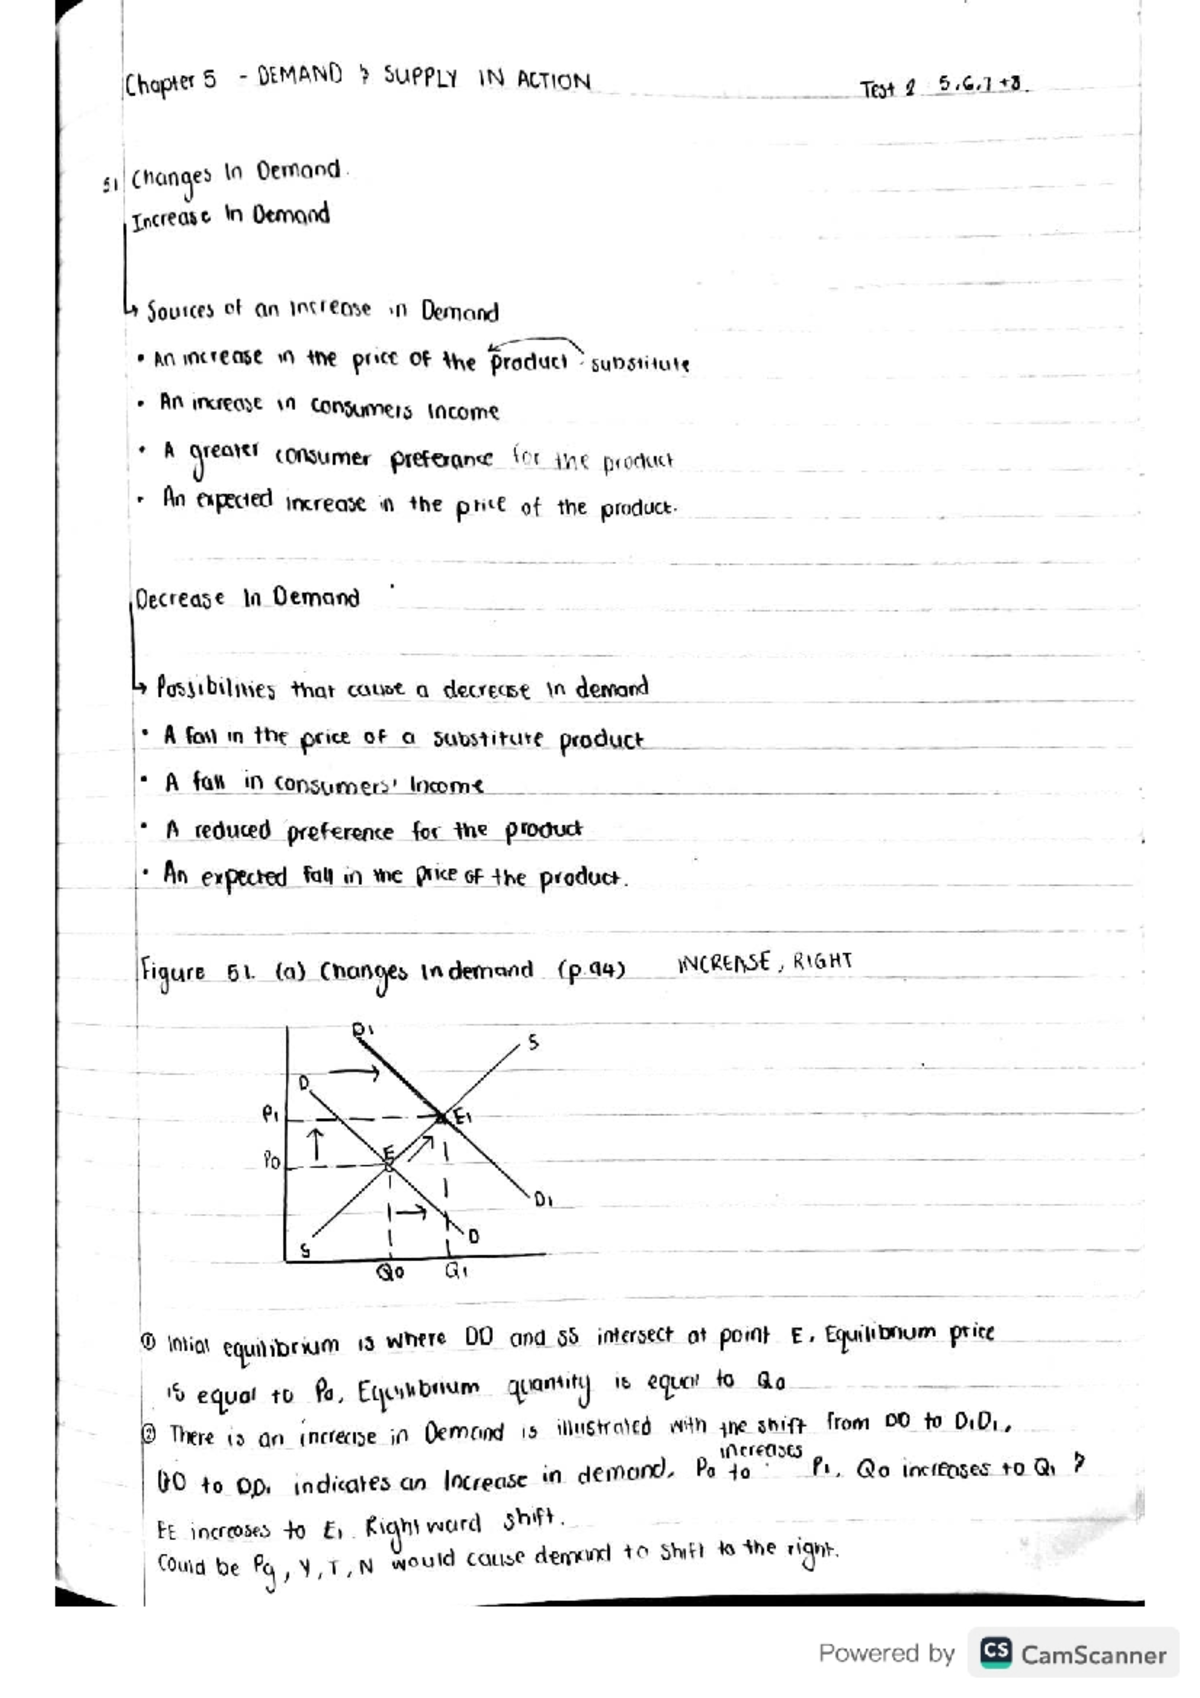 Chapter 5 - DEMAND & SUPPLY IN ACTION
Test 2 5,6,7+8.
51 Changes In Demand.
Increase In Demand
↳ Sources of an increase in Demand
• An increase in the price of the product substitute
• An increase in consumers income
• A greater consumer preferance for the product
• An expected increase in the price of the product.
Decrease In Demand
↳ Possibilities that cause a decrease in demand
• A fall in the price of a substitute product
• A fall in consumers' Income
• A reduced preference for the product
• An expected fall in the price of the product.
Figure 51. (a) Changes In demand (p.94) INCREASE, RIGHT
D1
S
D
P1
E1
P0
E
D1
S
D
Q0 Q1
① Intial equilibrium is where DD and SS intersect at point E, Equilibrium price
is equal to P0, Equilibrium quantity is equal to Q0
② There is an increase in Demand is illustrated with the shift from DD to D1D1,
DD to D1D1 indicates an Increase in demand, P0 increases to P1, Q0 increases to Q1 &
EE increases to E1. Rightward shift.
Could be Pg, Y, T, N would cause demand to shift to the right.
Powered by CS CamScanner